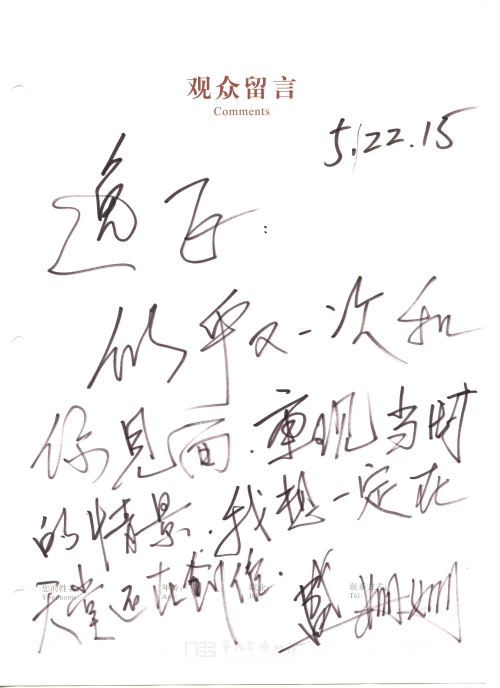 观众留言
Comments
5.22.15
逸飞：
似乎又一次和
你見面.重现当时
的情景.我想一定在
天堂还在创作.
您的姓
Your name:
年龄:
联系方式:
Tel: